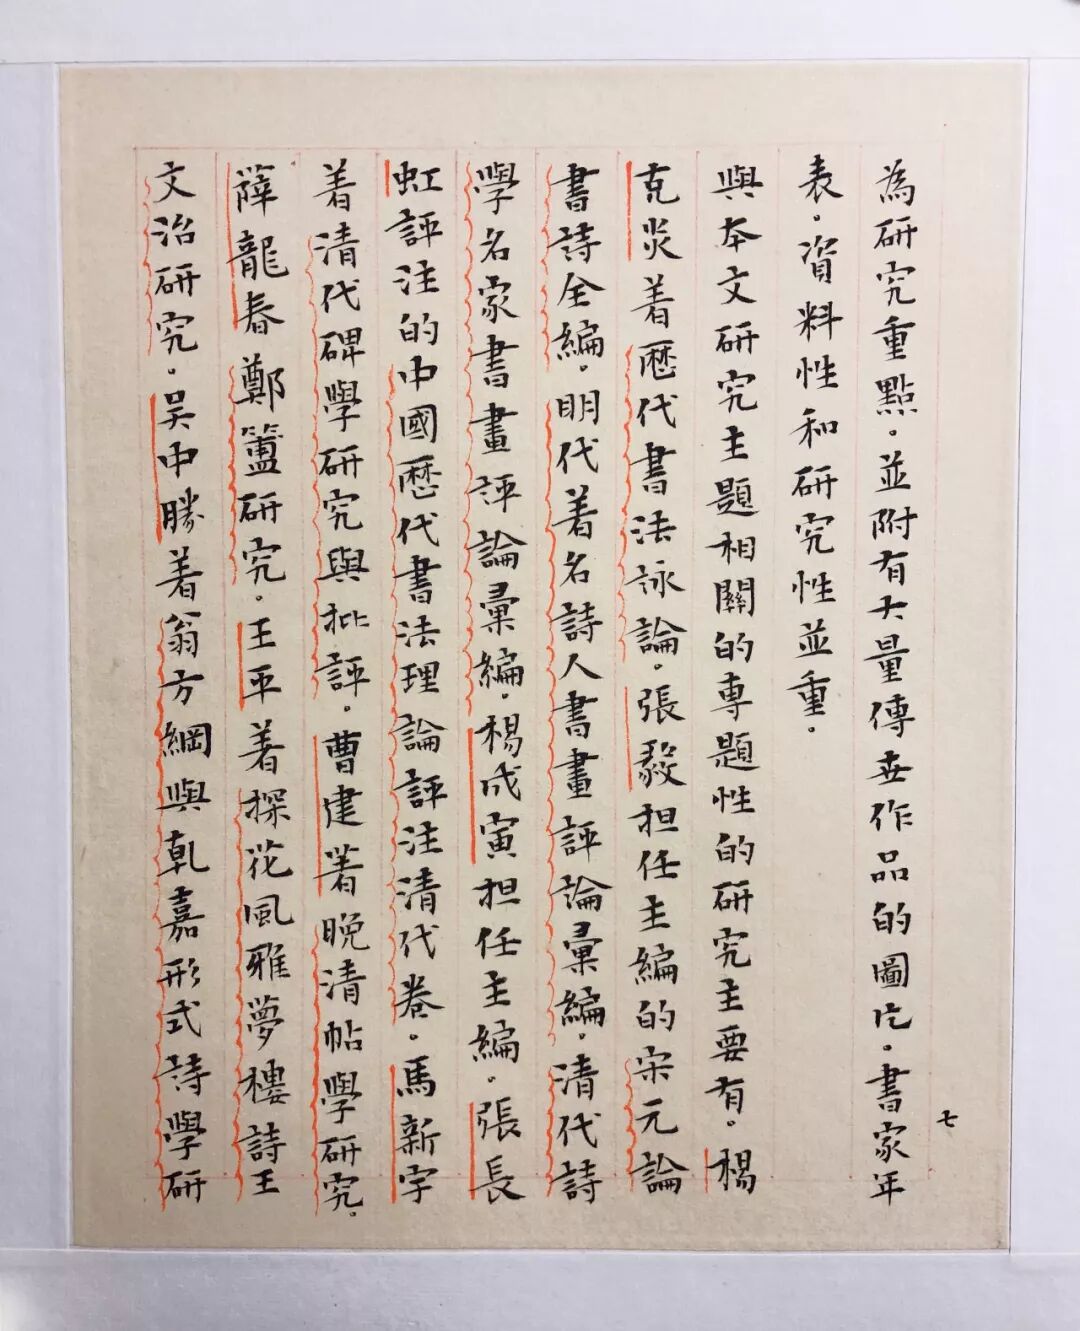 為研究重點。並附有大量傳世作品的圖片。書家年
表。資料性和研究性並重。
與本文研究主題相關的專題性的研究主要有。楊
克炎着歷代書法詠論。張毅担任主編的宋元論
書詩全編。明代着名詩人書畫評論彙編。清代詩
學名家書畫評論彙編。楊成寅担任主編。張長
虹評注的中國歷代書法理論評注清代卷。馬新宇
着清代碑學研究與批評。曹建着晚清帖學研究。
薛龍春鄭簠研究。王平着探花風雅夢樓詩王
文治研究。吴中勝着翁方綱與乹嘉形式詩學研
七